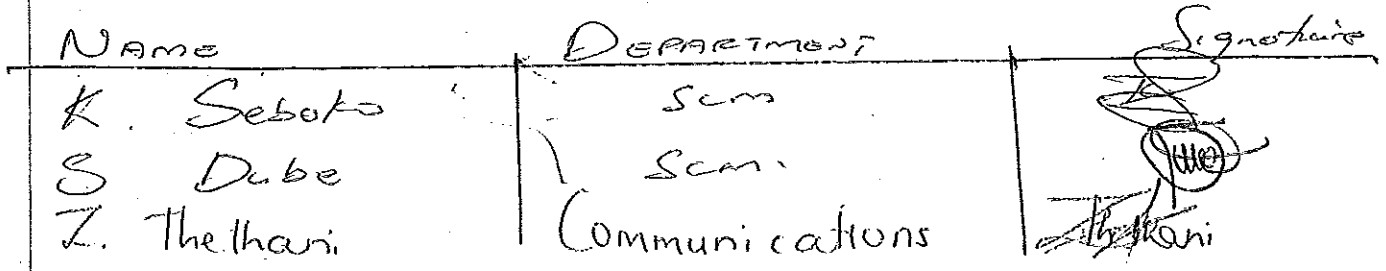 NAME DEPARTMENT Signature
K. Seboko SCM
S Dube SCM.
Z. Thelhani Communications Thelhani